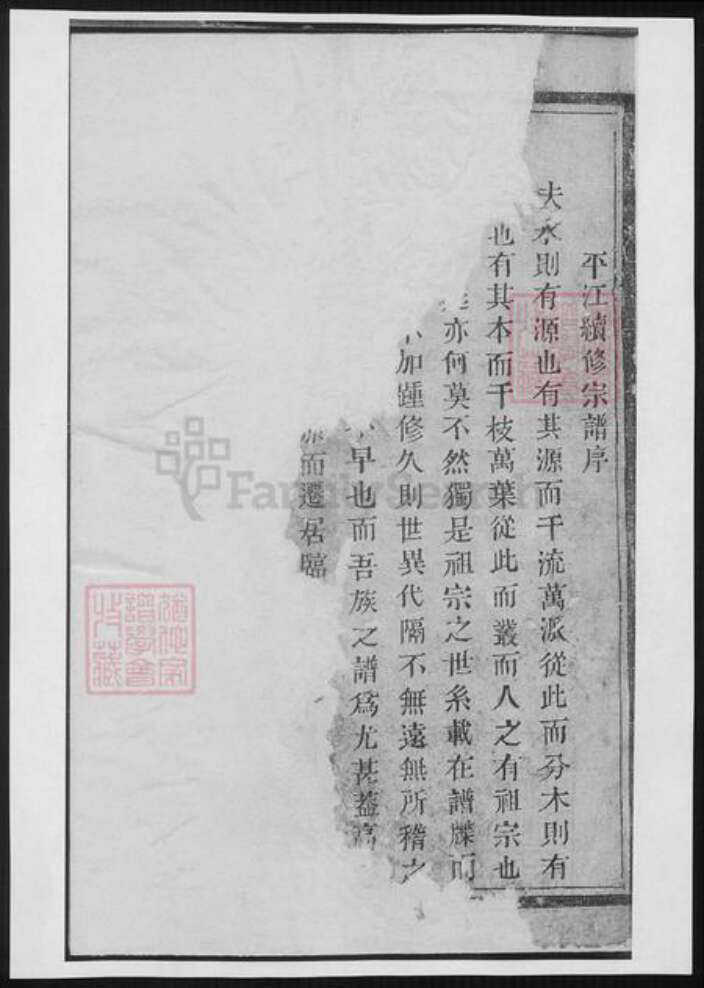 平江續修宗譜序
夫水則有源也有其源而千流萬派從此而分木則有
也有其本而千枝萬葉從此而叢而人之有祖宗也
亦何莫不然獨是祖宗之世系載在譜牒而
加踵修久則世異代隔不無遠無所稽之
早也而吾族之譜爲尤甚蓋高
而遷居臨
譜學會
收藏
FamilySearch